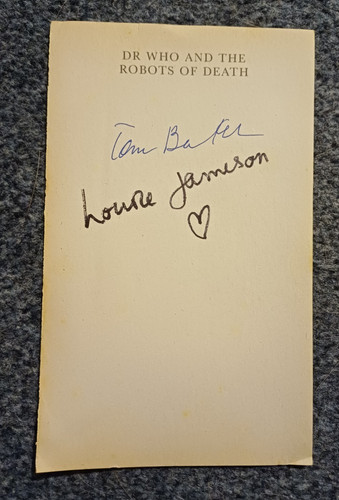 DR WHO AND THE
ROBOTS OF DEATH
Tom Baker
Louise Jameson